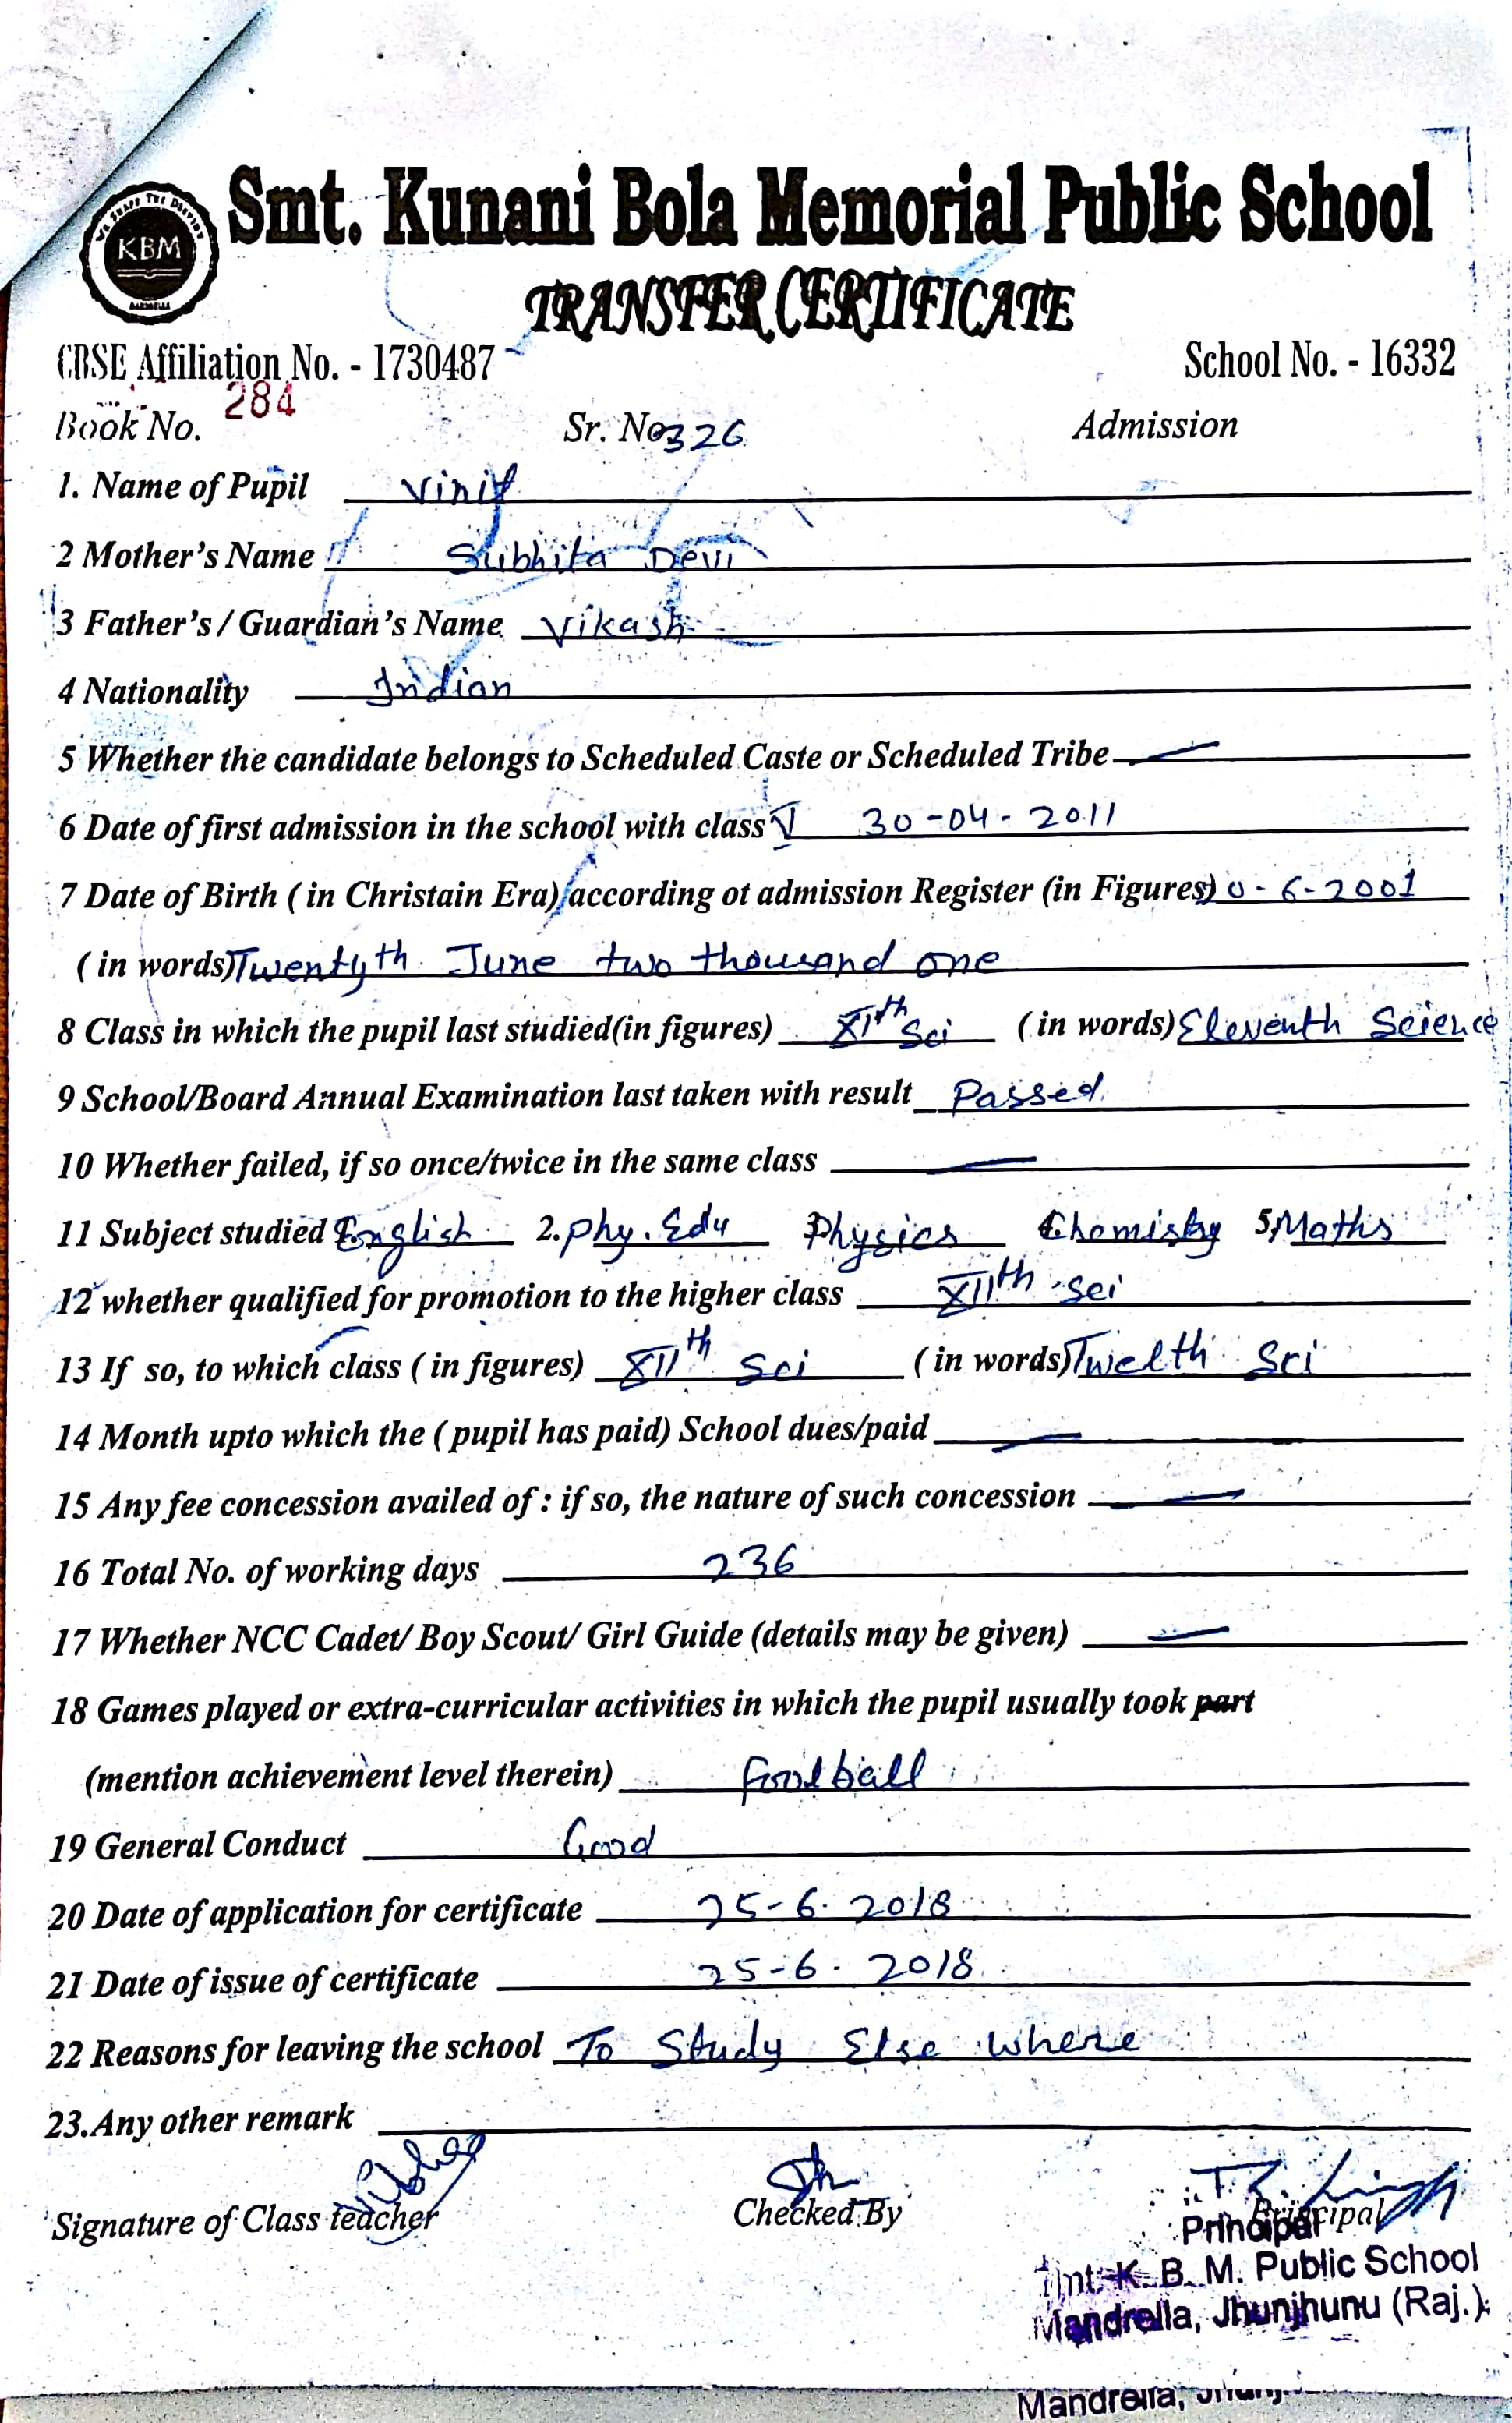 KBM
Smt. Kunani Bola Memorial Public School
TRANSFER CERTIFICATE
CBSE Affiliation No. - 1730487 School No. - 16332
Book No. 284 Sr. No 326 Admission
1. Name of Pupil Vinit
2 Mother's Name Subhita Devi
3 Father's / Guardian's Name Vikash
4 Nationality Indian
5 Whether the candidate belongs to Scheduled Caste or Scheduled Tribe —
6 Date of first admission in the school with class V 30-04-2011
7 Date of Birth ( in Christain Era) according ot admission Register (in Figures) 0-6-2001
( in words) Twentyth June two thousand one
8 Class in which the pupil last studied(in figures) XIth Sci ( in words) Eleventh Science
9 School/Board Annual Examination last taken with result Passed
10 Whether failed, if so once/twice in the same class —
11 Subject studied English 2. Phy. Edu 3 Physics 4. Chemistry 5, Maths
12 whether qualified for promotion to the higher class XIIth Sci
13 If so, to which class ( in figures) XIIth Sci ( in words) Twelth Sci
14 Month upto which the ( pupil has paid) School dues/paid —
15 Any fee concession availed of : if so, the nature of such concession —
16 Total No. of working days 236
17 Whether NCC Cadet/ Boy Scout/ Girl Guide (details may be given) —
18 Games played or extra-curricular activities in which the pupil usually took part
(mention achievement level therein) Football
19 General Conduct Good
20 Date of application for certificate 25-6-2018
21 Date of issue of certificate 25-6-2018
22 Reasons for leaving the school To Study Else where
23.Any other remark
Signature of Class teacher Checked By Principal
Principal
K. B. M. Public School
Mandrella, Jhunjhunu (Raj.)
Mandrella,